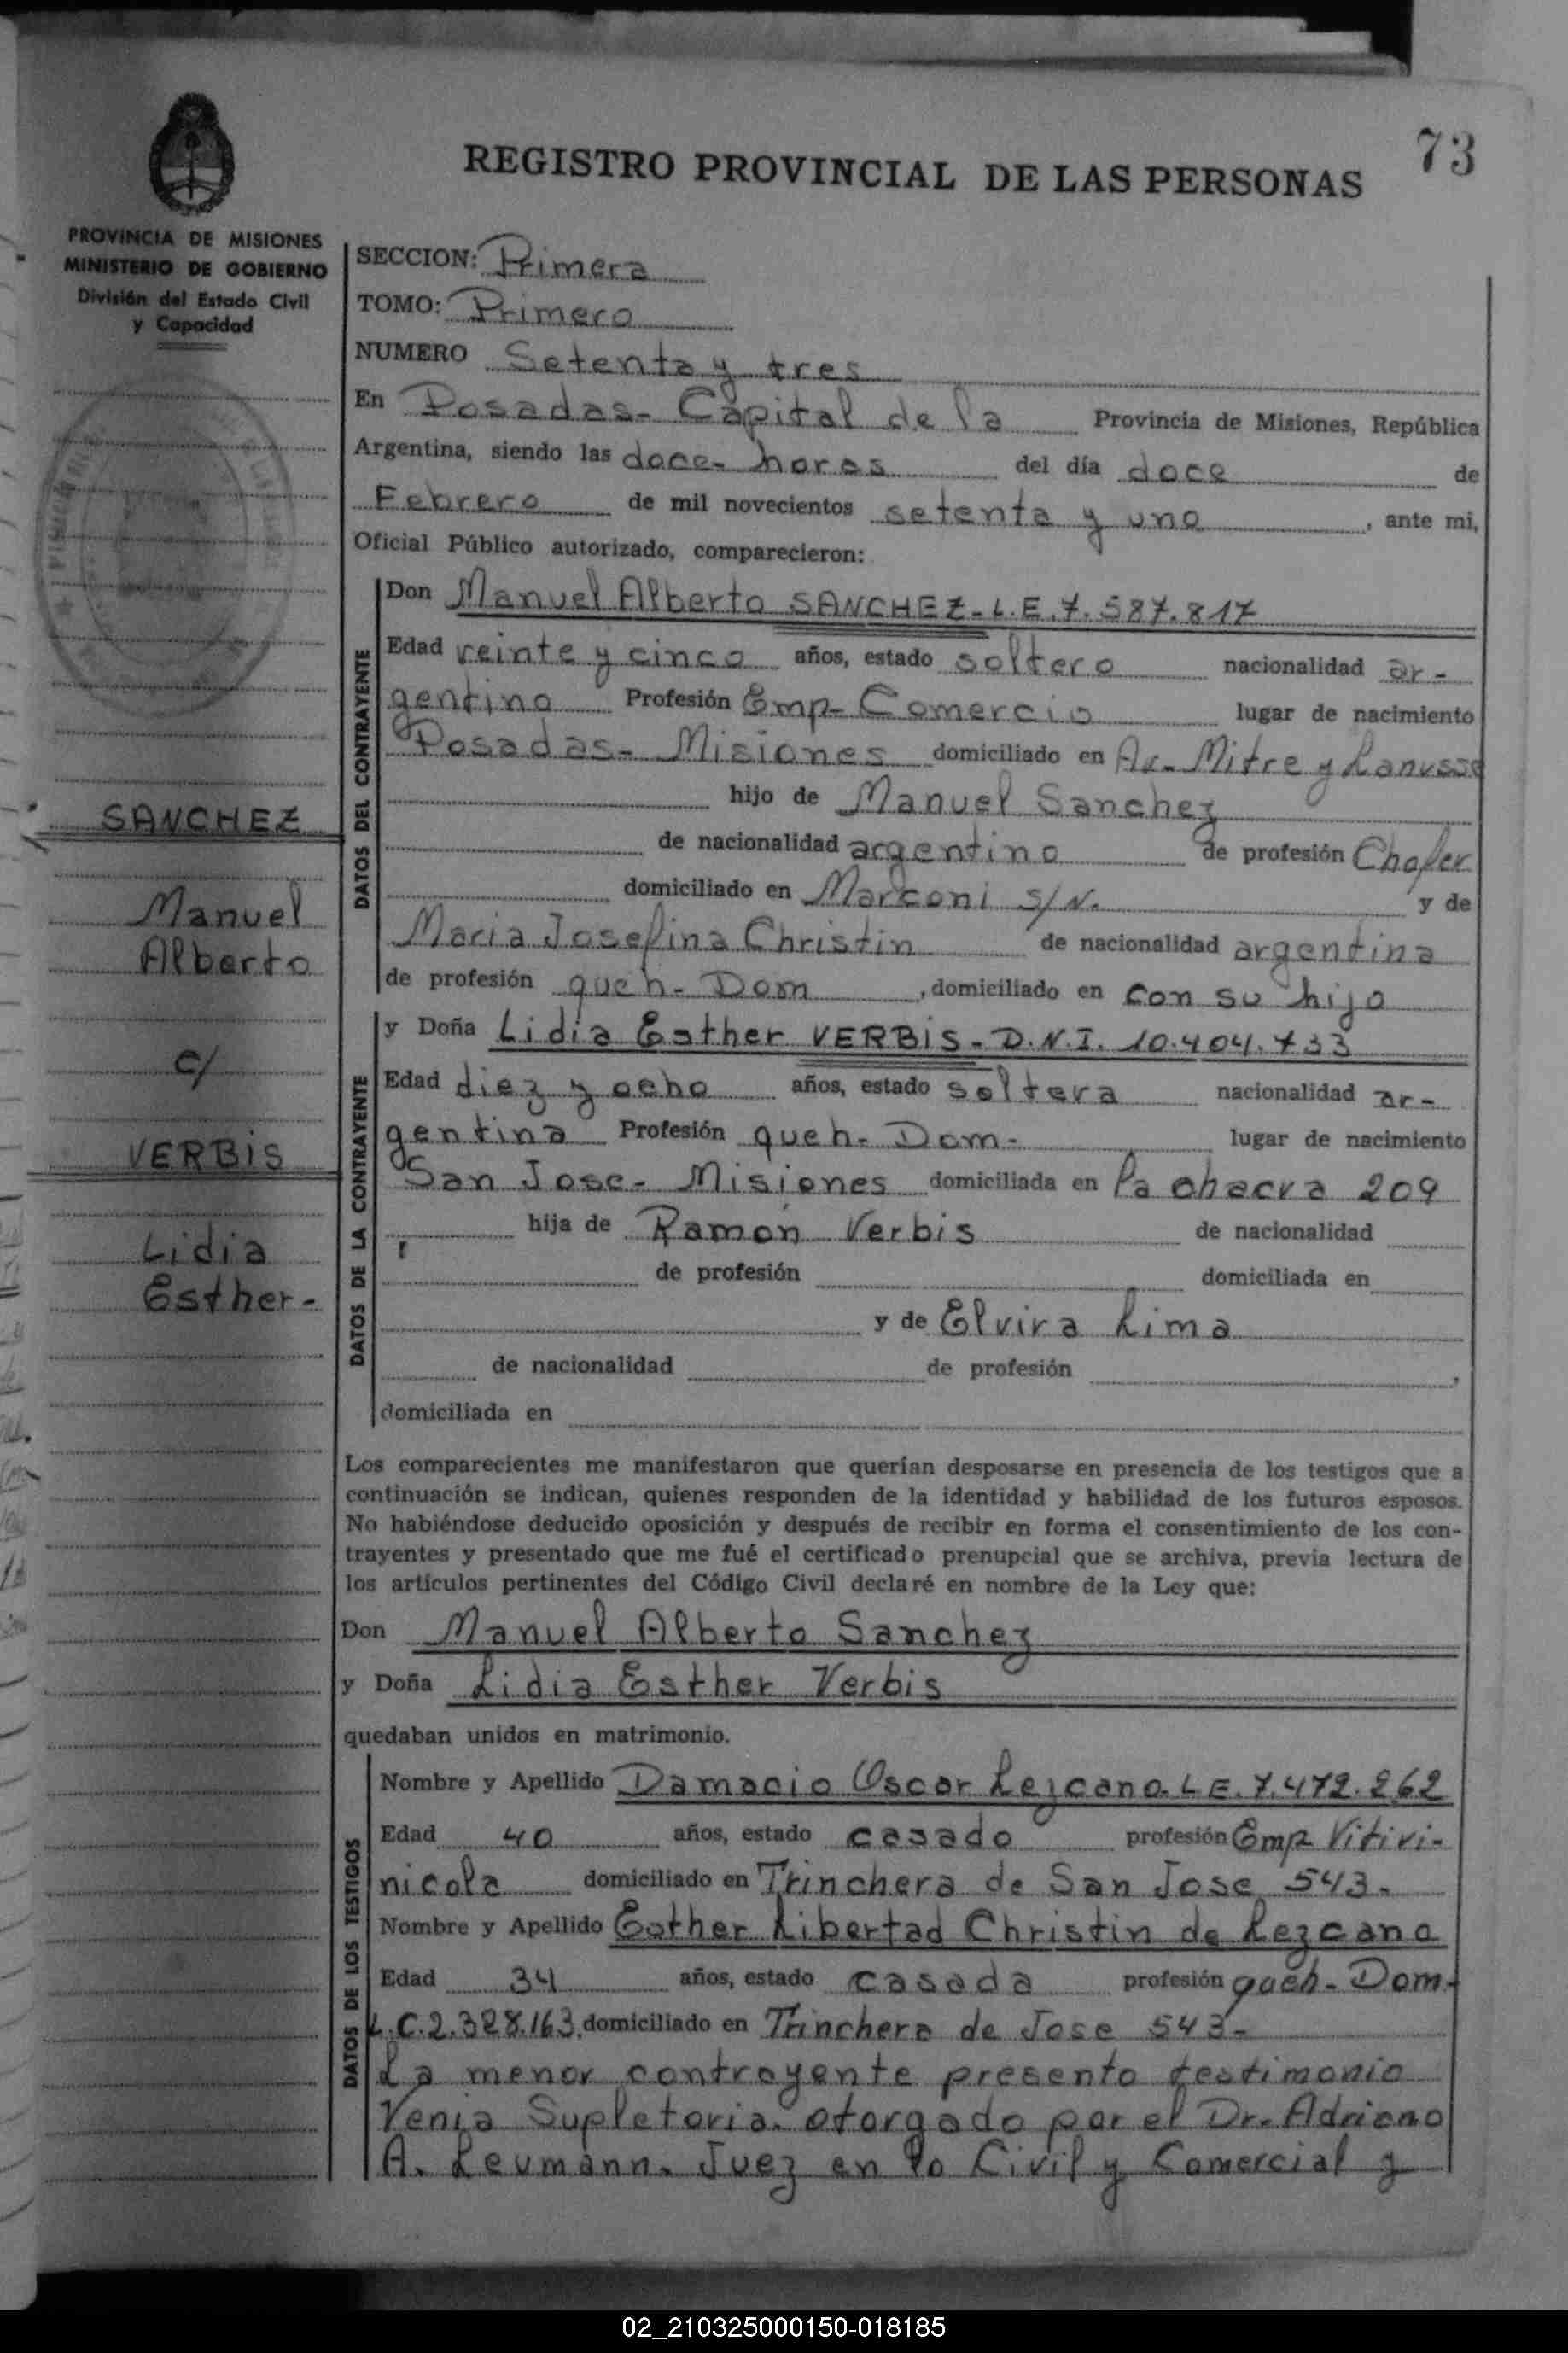 73
REGISTRO PROVINCIAL DE LAS PERSONAS
PROVINCIA DE MISIONES
MINISTERIO DE GOBIERNO
División del Estado Civil
y Capacidad
SECCION: Primera
TOMO: Primero
NUMERO Setenta y tres
En Posadas- Capital de la Provincia de Misiones, República
Argentina, siendo las doce- horas del día doce de
Febrero de mil novecientos setenta y uno, ante mi,
Oficial Público autorizado, comparecieron:
DATOS DEL CONTRAYENTE
Don Manuel Alberto SANCHEZ- L.E. 7.587.817
Edad veinte y cinco años, estado soltero nacionalidad ar-
gentino Profesión Emp- Comercio lugar de nacimiento
Posadas- Misiones domiciliado en Av- Mitre y Lanusse
hijo de Manuel Sanchez
de nacionalidad argentino de profesión Chofer
domiciliado en Marconi s/N.- y de
Maria Josefina Christin de nacionalidad argentina
de profesión queh- Dom, domiciliado en con su hijo
DATOS DE LA CONTRAYENTE
y Doña Lidia Esther VERBIS- D.N.I. 10.404.733
Edad diez y ocho años, estado soltera nacionalidad ar-
gentina Profesión queh- Dom- lugar de nacimiento
San Jose- Misiones domiciliada en la chacra 209
hija de Ramón Verbis de nacionalidad
de profesión domiciliada en
y de Elvira Lima
de nacionalidad de profesión ,
domiciliada en
SANCHEZ
Manuel
Alberto
c/
VERBIS
Lidia
Esther-
Los comparecientes me manifestaron que querían desposarse en presencia de los testigos que a
continuación se indican, quienes responden de la identidad y habilidad de los futuros esposos.
No habiéndose deducido oposición y después de recibir en forma el consentimiento de los con-
trayentes y presentado que me fué el certificado prenupcial que se archiva, previa lectura de
los artículos pertinentes del Código Civil declaré en nombre de la Ley que:
Don Manuel Alberto Sanchez
y Doña Lidia Esther Verbis
quedaban unidos en matrimonio.
DATOS DE LOS TESTIGOS
Nombre y Apellido Damacio Oscar Lezcano- L E. 7.472.262
Edad 40 años, estado casado profesión Emp. Vitivi-
nicola domiciliado en Trinchera de San Jose 543-
Nombre y Apellido Esther Libertad Christin de Lezcano
Edad 34 años, estado casada profesión queh- Dom-
L.C. 2.328.163. domiciliado en Trinchera de Jose 543-
La menor contrayente presento testimonio
Venia Supletoria. otorgado por el Dr. Adriano
A. Leumann. Juez en lo Civil y Comercial y
02_210325000150-018185